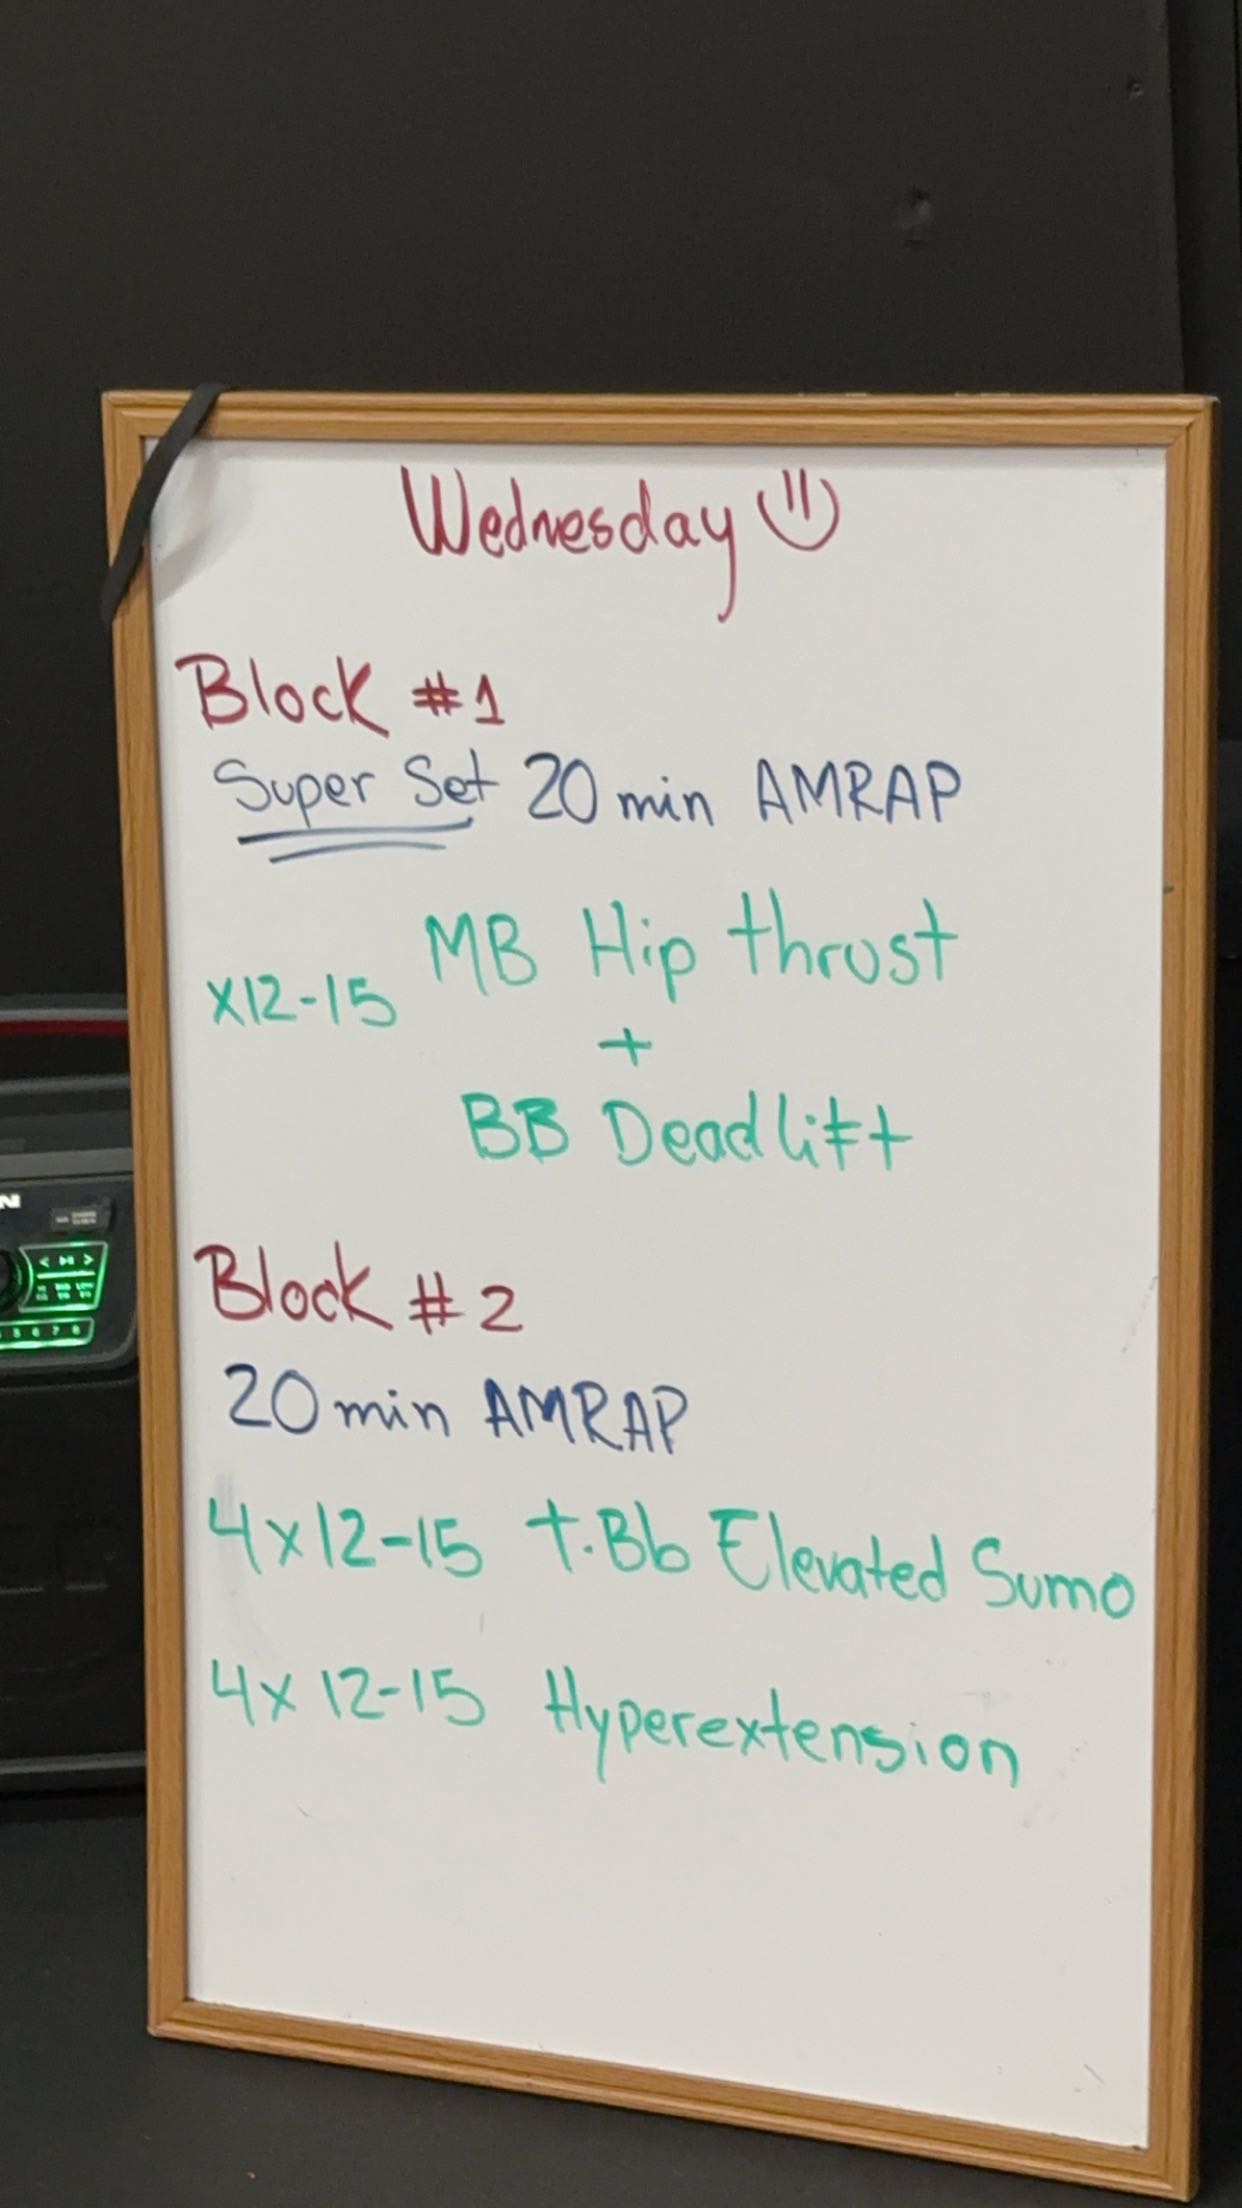 Wednesday
Block #1
Super Set 20 min AMRAP
MB Hip thrust
x12-15
+
BB Deadlift
Block #2
20 min AMRAP
4x12-15 t.Bb Elevated Sumo
4x12-15 Hyperextension
N
5 6 7 8